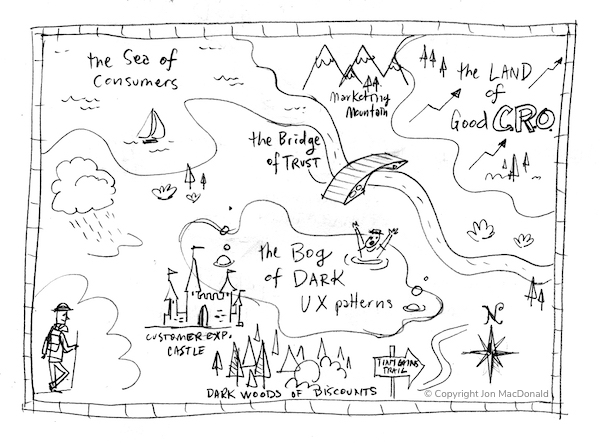 the Sea of
Consumers
Marketing
Mountain
the LAND
of
Good C.R.O.
the Bridge
of TRUST
the Bog
of DARK
UX patterns
CUSTOMER EXP.
CASTLE
DARK WOODS OF DISCOUNTS
TINY GAINS
TRAIL
N
© Copyright Jon MacDonald